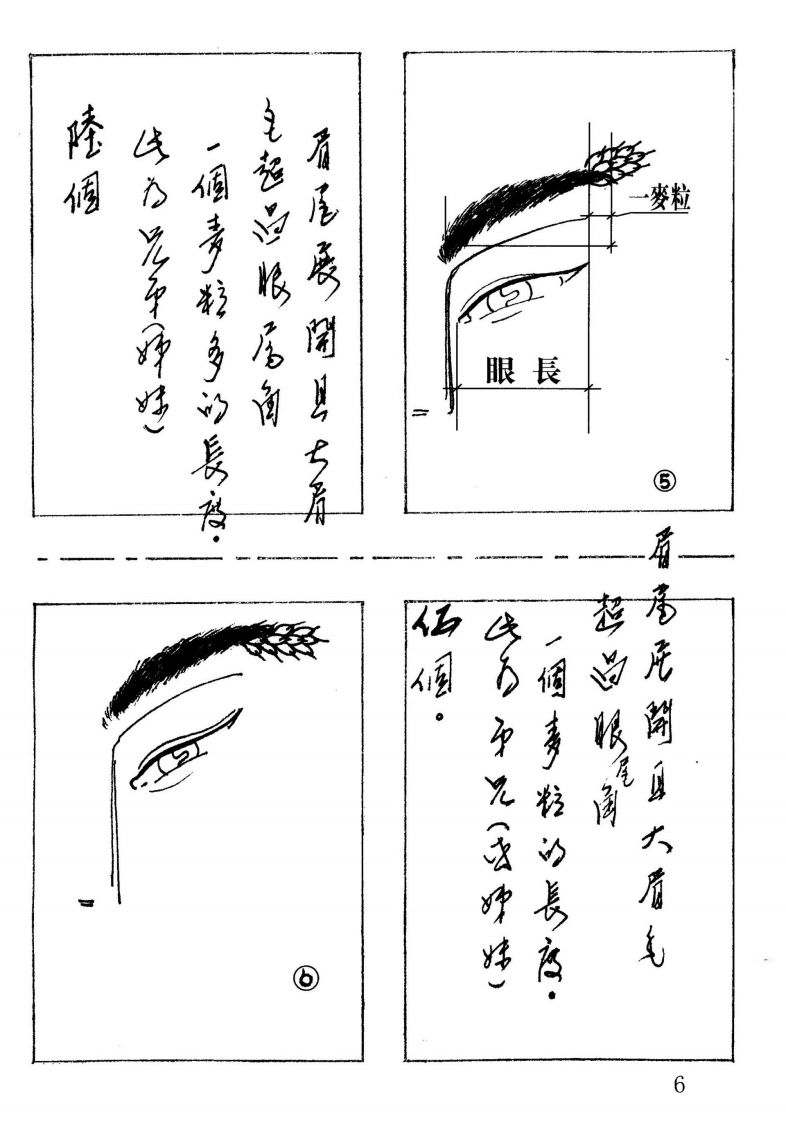 一麥粒
眼長
⑤
眉尾展開且大眉毛
超過眼尾角
一個麥粒的長度。
此為弟兄(或姊妹)
伍個。
眉尾展開且大眉
毛超過眼尾角
一個麥粒多的長度。
此為兄弟(姊妹)
陸個
⑥
6